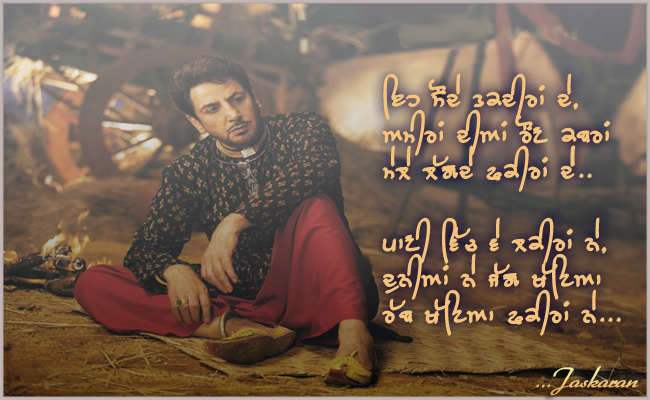 ਇਹ ਸੌਦੇ ਤਕਦੀਰਾਂ ਦੇ,
ਅਮੀਰਾਂ ਦੀਆਂ ਰੌਣ ਕਬਰਾਂ
ਮੇਲੇ ਲੱਗਦੇ ਫਕੀਰਾਂ ਦੇ..
ਪਾਣੀ ਵਿੱਚ ਵੇ ਲਕੀਰਾਂ ਨੇ,
ਦੁਨੀਆਂ ਨੇ ਜੱਗ ਖੱਟਿਆ
ਰੱਬ ਖੱਟਿਆ ਫਕੀਰਾਂ ਨੇ...
...Jaskaran